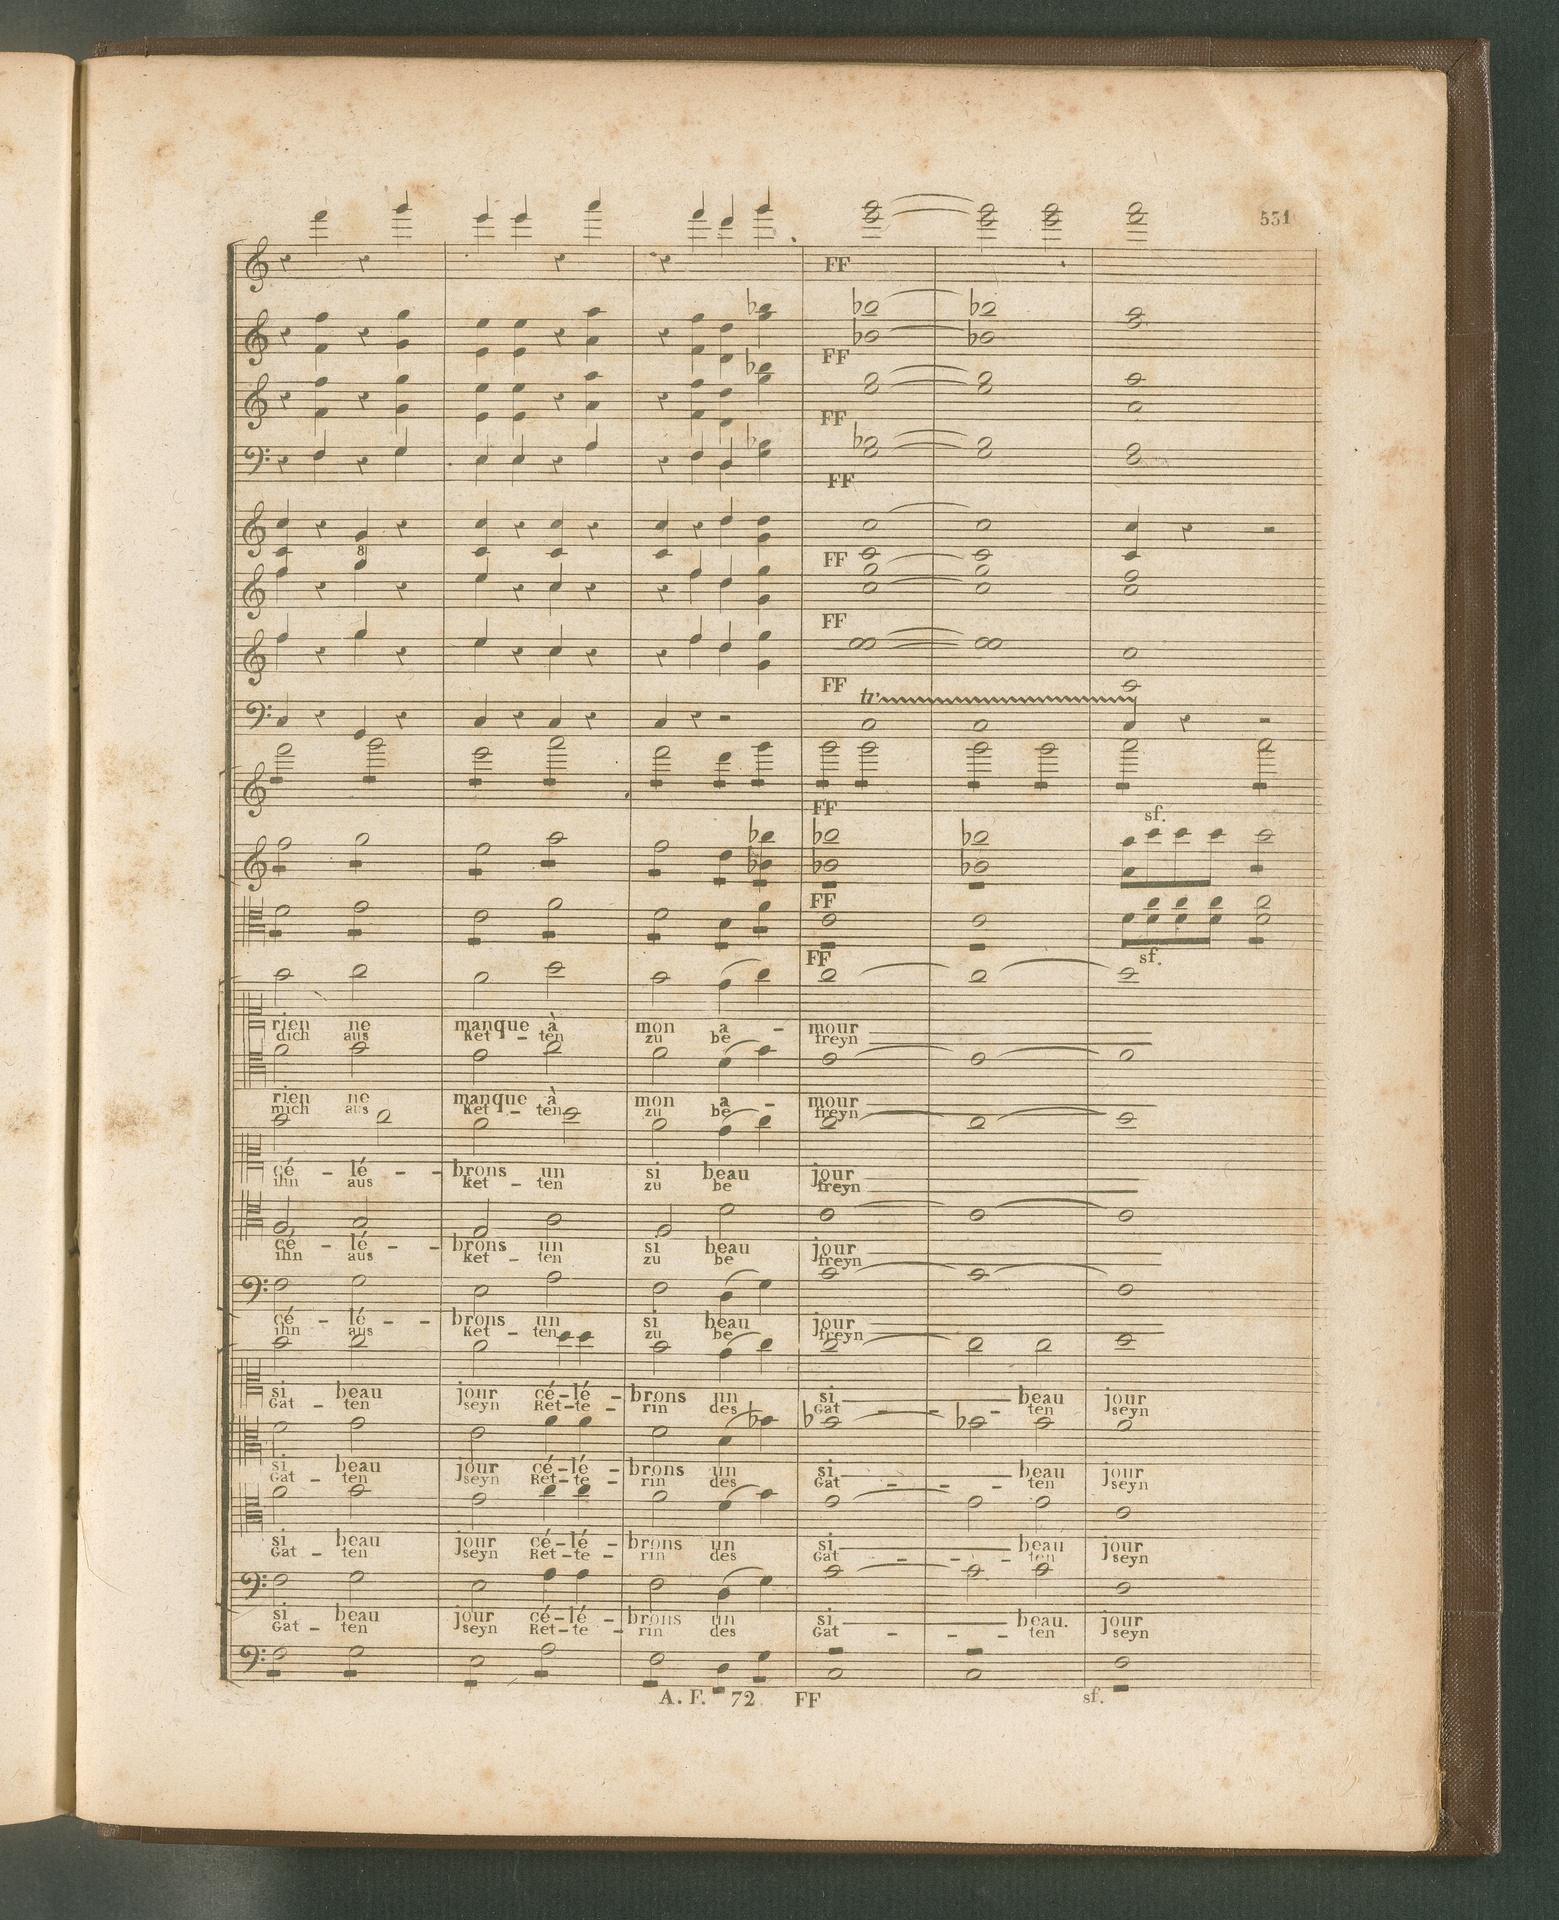 531
FF
FF
FF
FF
8
FF
FF
FF tr
FF
sf.
FF
FF sf.
rien ne manque à mon a - mour
dich aus Ket - ten zu be freyn
rien ne manque à mon a - mour
mich aus Ket - ten zu be freyn
cé - lé - - brons un si beau jour
ihn aus Ket - ten zu be freyn
cé - lé - - brons un si beau jour
ihn aus Ket - ten zu be freyn
cé - lé - - brons un si beau jour
ihn aus Ket - ten zu be freyn
si beau jour cé - lé - brons un si beau jour
Gat - ten seyn Ret - te - rin des Gat - - ten seyn
si beau jour cé - lé - brons un si beau jour
Gat - ten seyn Ret - te - rin des Gat - - - ten seyn
si beau jour cé - lé - brons un si beau jour
Gat - ten seyn Ret - te - rin des Gat - - - ten seyn
si beau jour cé - lé - brons un si beau. jour
Gat - ten seyn Ret - te - rin des Gat - - - ten seyn
A. F. 72 FF sf.